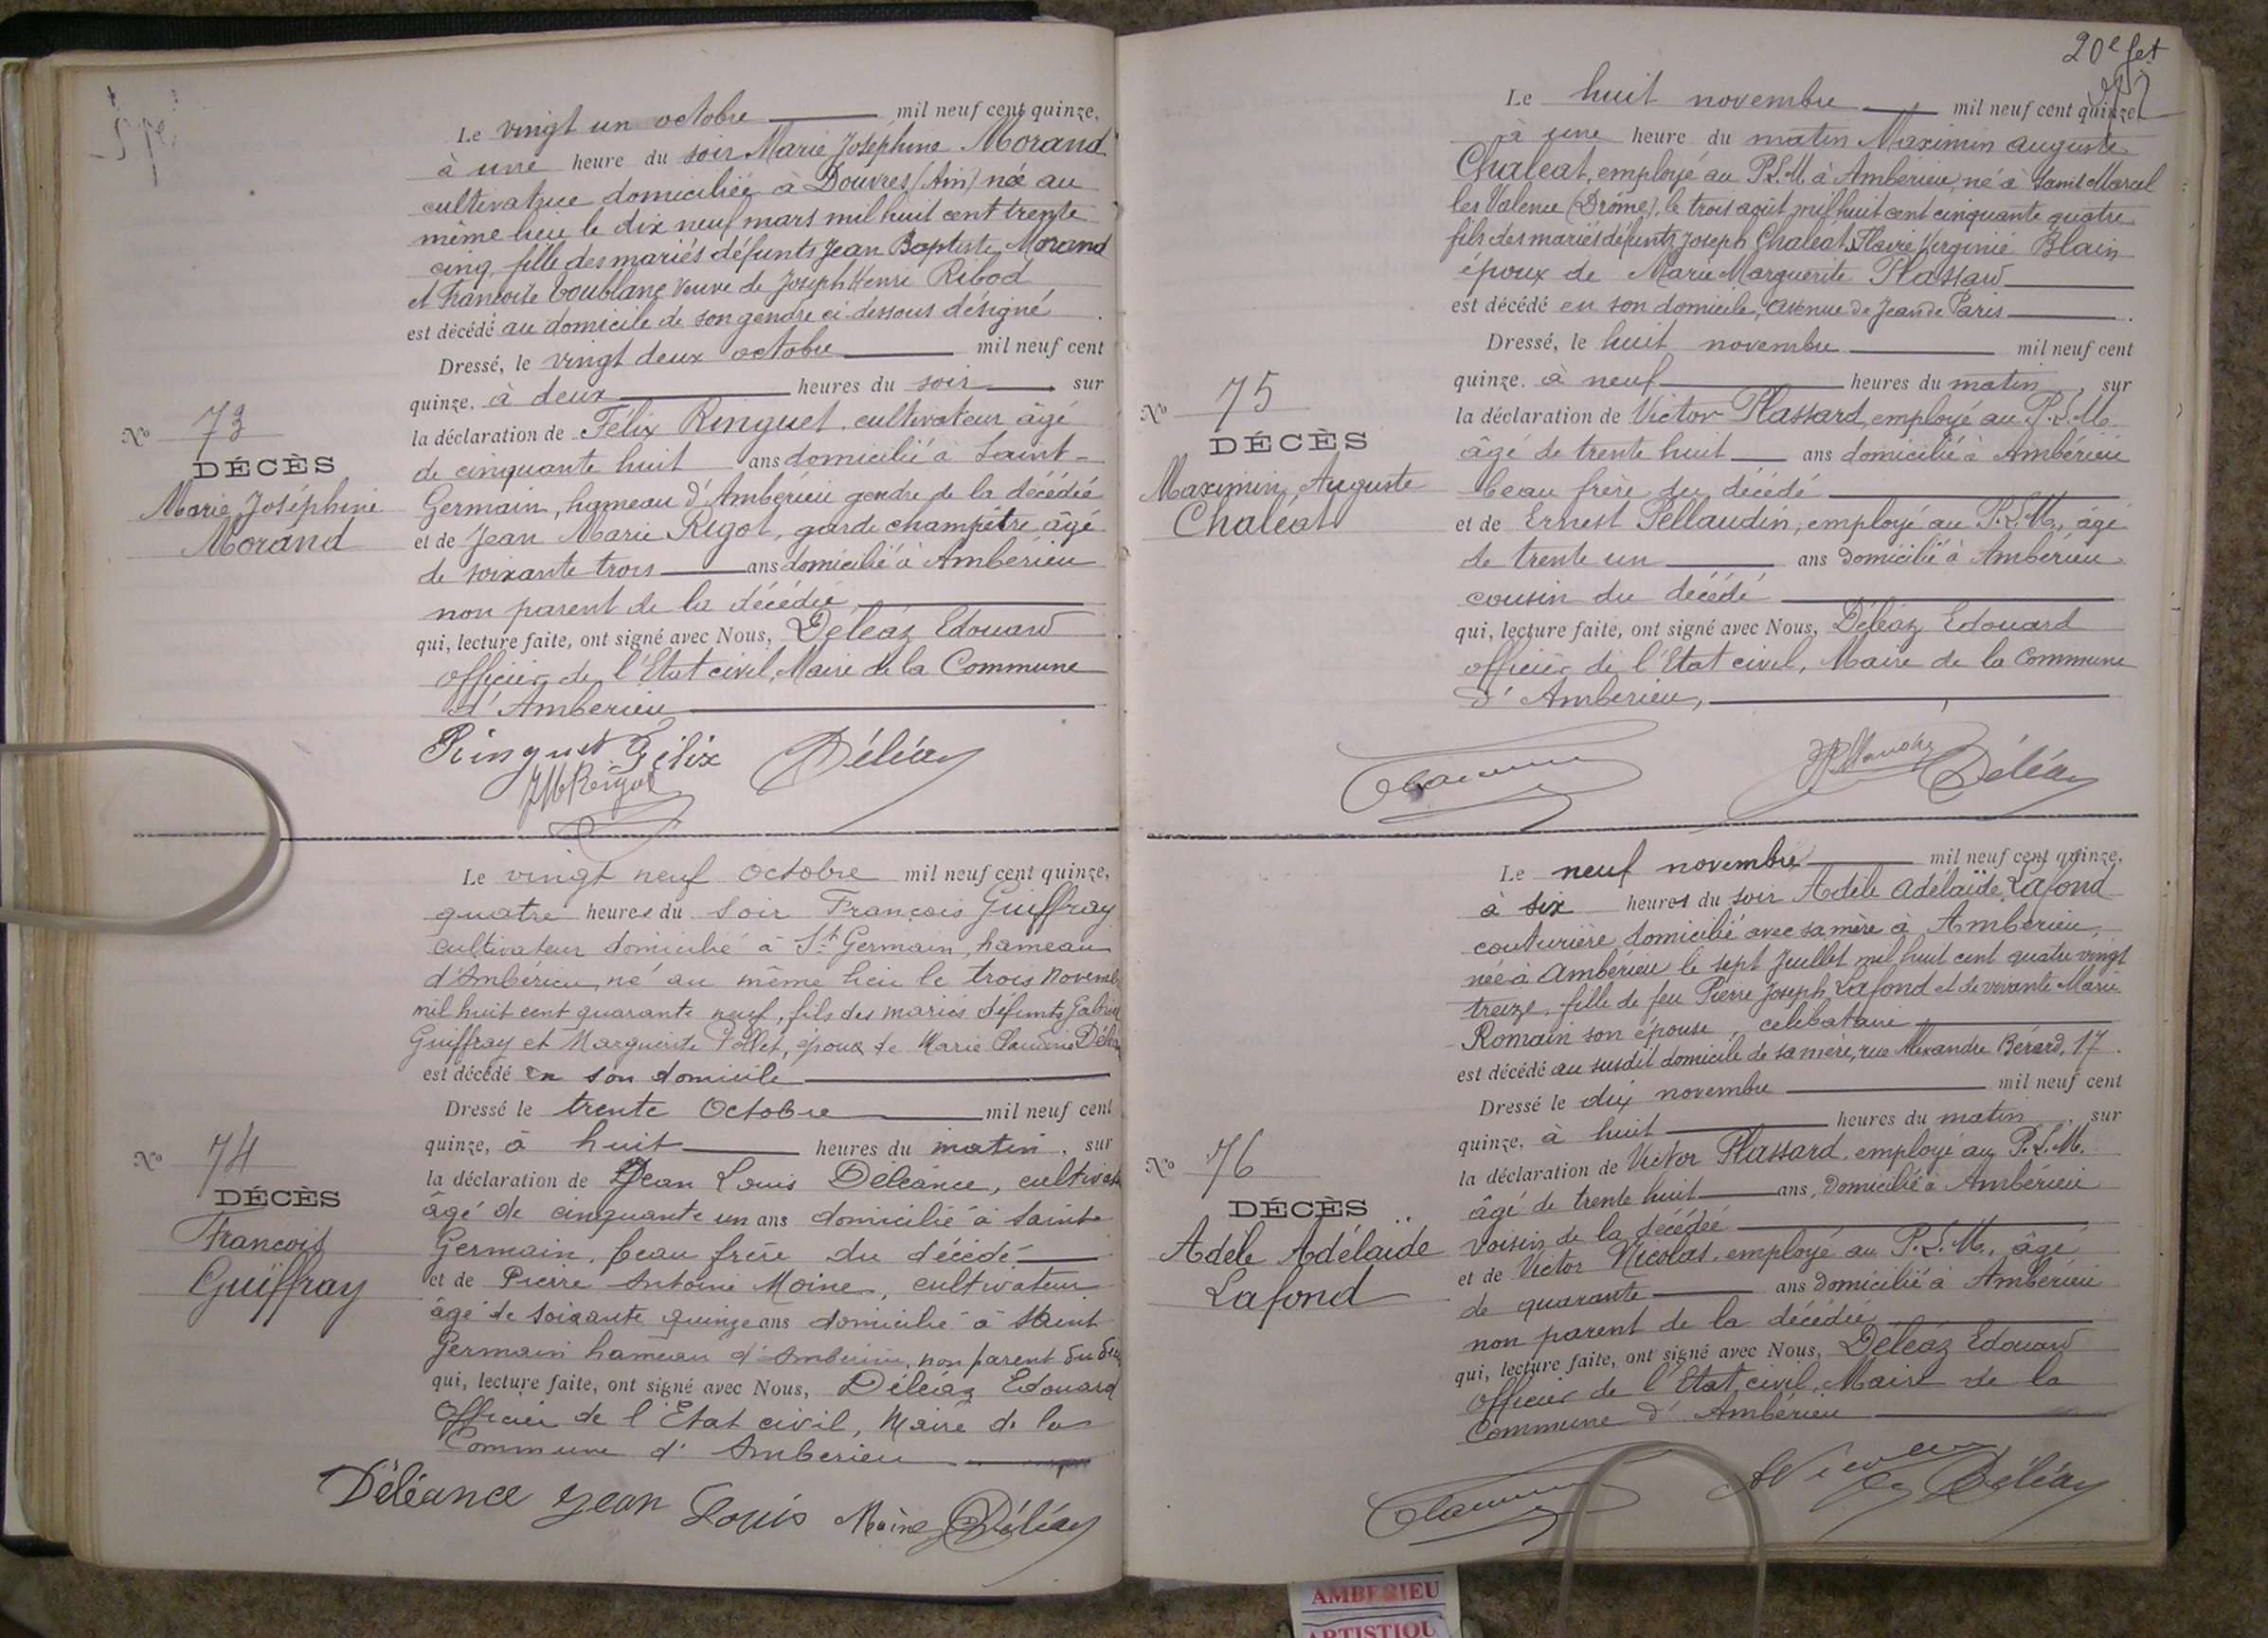 Le vingt un octobre mil neuf cent quinze,
à une heure du soir Marie Joséphine Morand
cultivatrice domiciliée à Douvres (Ain) née au
même lieu le dix neuf mars mil huit cent trente
cinq, fille des mariés défunts Jean Baptiste Morand
et Françoise veuve de Joseph Henri Ribod
est décédé au domicile de son gendre ci-dessous désigné
Dressé, le vingt deux octobre mil neuf cent
quinze, à deux heures du soir sur
la déclaration de Félix Ringuet, cultivateur âgé
de cinquante huit ans domicilié à Saint-
Germain, hameau d'Ambérieu gendre de la décédée
et de Jean Marie Rigot, garde champêtre âgé
de soixante trois ans domicilié à Ambérieu
non parent de la décédée
qui, lecture faite, ont signé avec Nous, Déléaz Edouard
officier de l'Etat civil, Maire de la Commune
d'Ambérieu
Ringuet Félix Déléaz
No 73
DÉCÈS
Marie Joséphine
Morand
Le vingt neuf Octobre mil neuf cent quinze,
quatre heures du soir François Guiffray
cultivateur domicilié à St Germain, hameau
d'Ambérieu, né au même lieu le trois Novemb
mil huit cent quarante neuf, fils des mariés défunts Gabriel
Guiffray et Marguerite Pollet, époux de Marie Claudine
est décédé en son domicile
Dressé le trente Octobre mil neuf cent
quinze, à huit heures du matin, sur
la déclaration de Jean Louis Déléance, cultivat
âgé de cinquante un ans domicilié à Saint
Germain, beau frère du décédé
et de Pierre Antoine Moine, cultivateur
âgé de soixante quinze ans domicilié à Saint
Germain hameau d'Ambérieu, non parent du
qui, lecture faite, ont signé avec Nous, Déléaz Edouard
Officier de l'Etat civil, Maire de la
Commune d'Ambérieu
Déléance Jean Louis Moine Déléaz
No 74
DÉCÈS
François
Guiffray
20e fet
Le huit novembre mil neuf cent quinze
à une heure du matin Maximin Auguste
Chaléat, employé au P.L.M. à Ambérieu, né à Saint Marcel
les Valence (Drôme), le trois août mil huit cent cinquante quatre
fils des mariés défunts Joseph Chaléat, Flavie Verginie Blain
époux de Marie Marguerite Plassard
est décédé en son domicile, avenue de Jean de Paris
Dressé, le huit novembre mil neuf cent
quinze, à neuf heures du matin, sur
la déclaration de Victor Plassard, employé au P.L.M.
âgé de trente huit ans domicilié à Ambérieu
beau frère du décédé
et de Ernest Pellaudin, employé au P.L.M., âgé
de trente un ans domicilié à Ambérieu
cousin du décédé
qui, lecture faite, ont signé avec Nous, Déléaz Edouard
officier de l'Etat civil, Maire de la Commune
d'Ambérieu,
Déléaz
No 75
DÉCÈS
Maximin, Auguste
Chaléat
Le neuf novembre mil neuf cent quinze,
à six heures du soir Adèle Adélaïde Lafond
couturière domicilié avec sa mère à Ambérieu,
née à Ambérieu le sept Juillet mil huit cent quatre vingt
treize, fille de feu Pierre Joseph Lafond et de vivante Marie
Romain son épouse, célibataire
est décédé au susdit domicile de sa mère, rue Alexandre Bérard, 17.
Dressé le dix novembre mil neuf cent
quinze, à huit heures du matin, sur
la déclaration de Victor Plassard, employé au P.L.M.
âgé de trente huit ans, domicilié à Ambérieu
voisin de la décédée
et de Victor Nicolas, employé au P.L.M., âgé
de quarante ans domicilié à Ambérieu
non parent de la décédée
qui, lecture faite, ont signé avec Nous, Déléaz Edouard
officier de l'Etat civil, Maire de la
Commune d'Ambérieu
Déléaz
No 76
DÉCÈS
Adèle Adélaïde
Lafond
AMBERIEU
ARTISTIQU